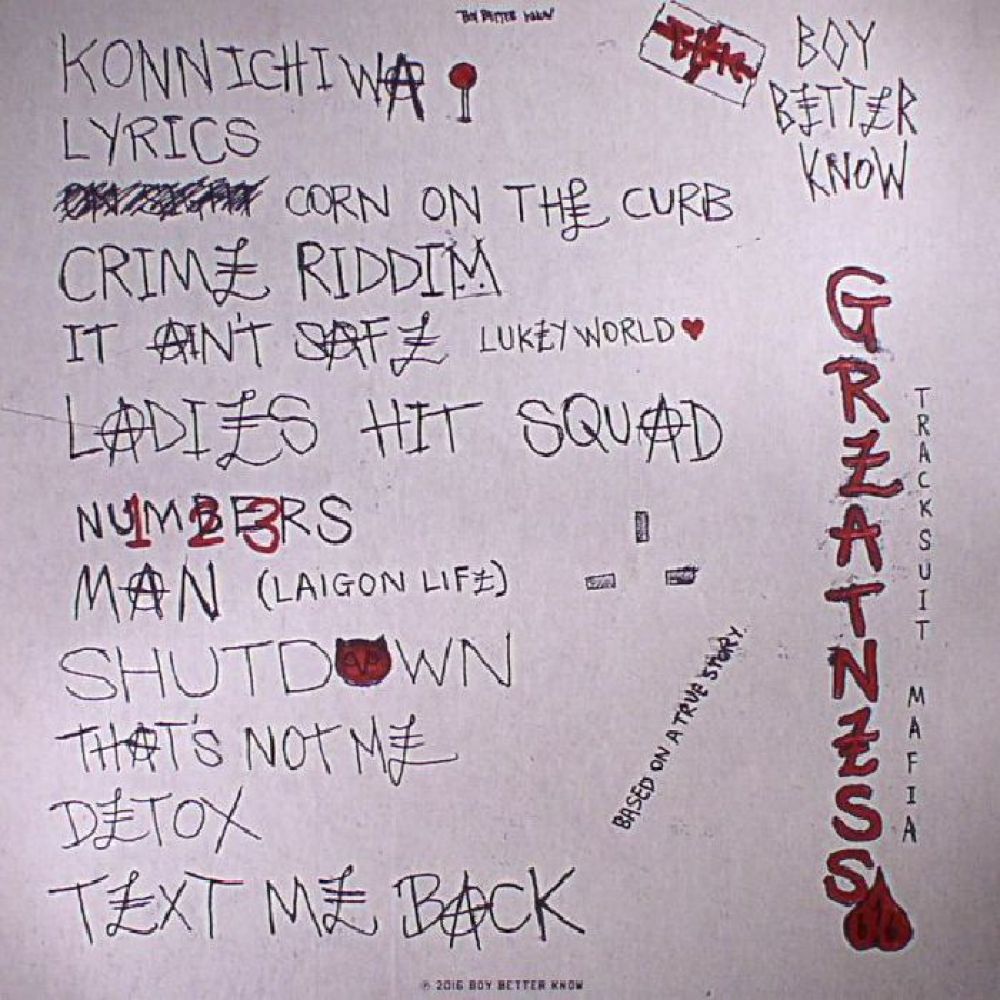 BOY BETTER KNOW
KONNICHIWA
LYRICS
CORN ON THE CURB
CRIME RIDDIM
IT AIN'T SAFE LUKEY WORLD
LADIES HIT SQUAD
NUMBERS
1 2 3
MAN (LAIGON LIFE)
SHUTDOWN
THAT'S NOT ME
DETOX
TEXT ME BACK
BOY
BETTER
KNOW
GREATNESS
TRACKSUIT MAFIA
BASED ON A TRUE STORY.
℗ 2016 BOY BETTER KNOW